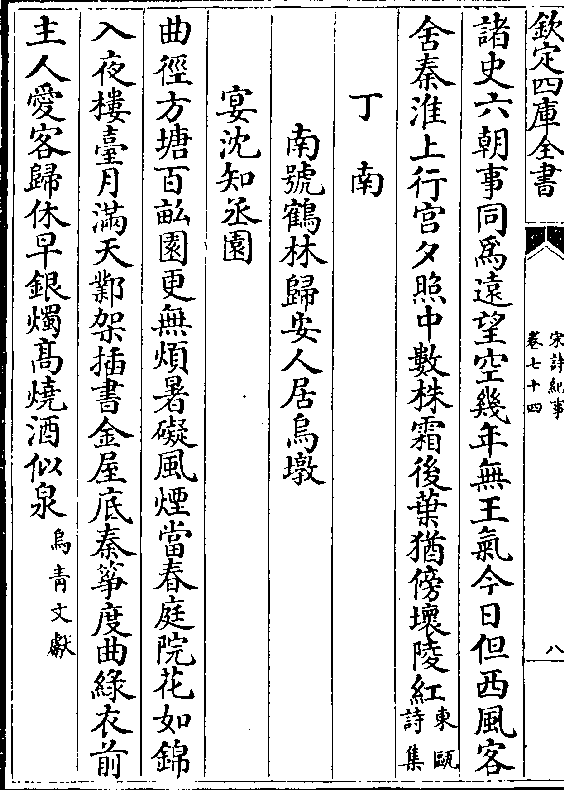 欽定四庫全書
宋詩紀事
卷七十四
八
諸史六朝事同為遠望空幾年無王氣今日但西風客
舍秦淮上行宮夕照中數株霜後葉猶傍壞陵紅東甌詩集
丁南
南號鶴林歸安人居烏墩
宴沈知丞園
曲徑方塘百畝園更無煩暑礙風煙當春庭院花如錦
入夜樓臺月滿天鄴架插書金屋底秦箏度曲綠衣前
主人愛客歸休早銀燭高燒酒似泉烏青文獻